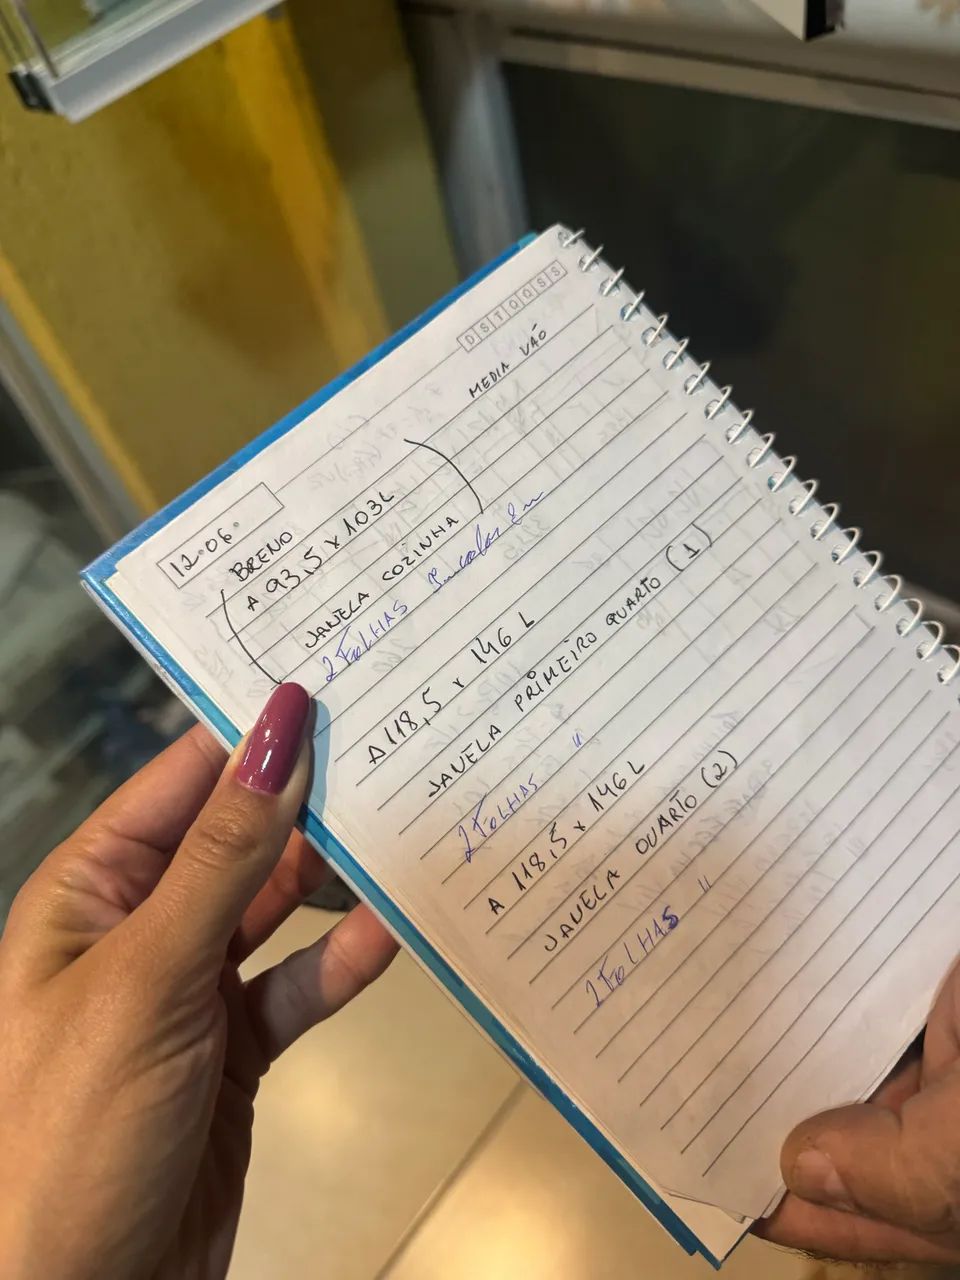 D S T Q Q S S
MEDIA VÃO
12.06.
BRENO
A 93,5 x 103 L
JANELA COZINHA
2 FOLHAS incolor
A 118,5 x 146 L
JANELA PRIMEIRO QUARTO (1)
2 FOLHAS "
A 118,5 x 146 L
JANELA QUARTO (2)
2 FOLHAS "